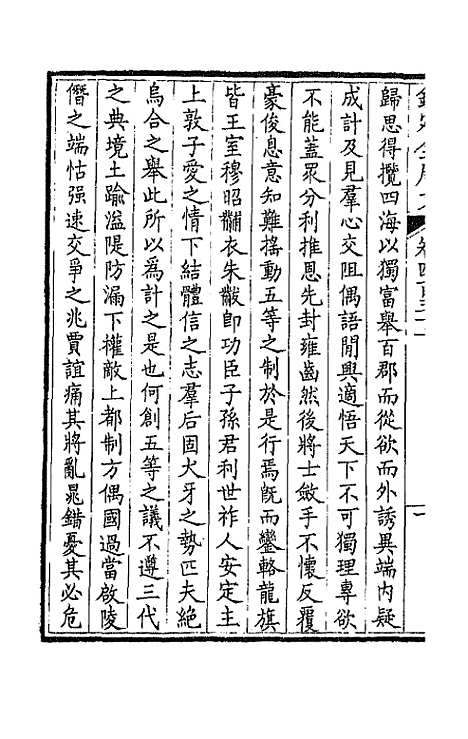 歸思得攬四海以獨富舉百郡而從欲而外誘異端內疑
成計及見羣心交阻偶語閒興適悟天下不可獨理專欲
不能蓋眾分利推恩先封雍齒然後將士斂手不懷反覆
豪俊息意知難搖動五等之制於是行焉旣而鑾輅龍旗
皆王室穆昭黼衣朱黻卽功臣子孫君利世祚人安定主
上敦子愛之情下結體信之志羣后固犬牙之勢匹夫絶
烏合之舉此所以爲計之是也何創五等之議不遵三代
之典境土踰溢隄防漏下權敵上都制方偶國過當啟陵
僭之端怙强速交爭之兆賈誼痛其將亂鼂錯憂其必危